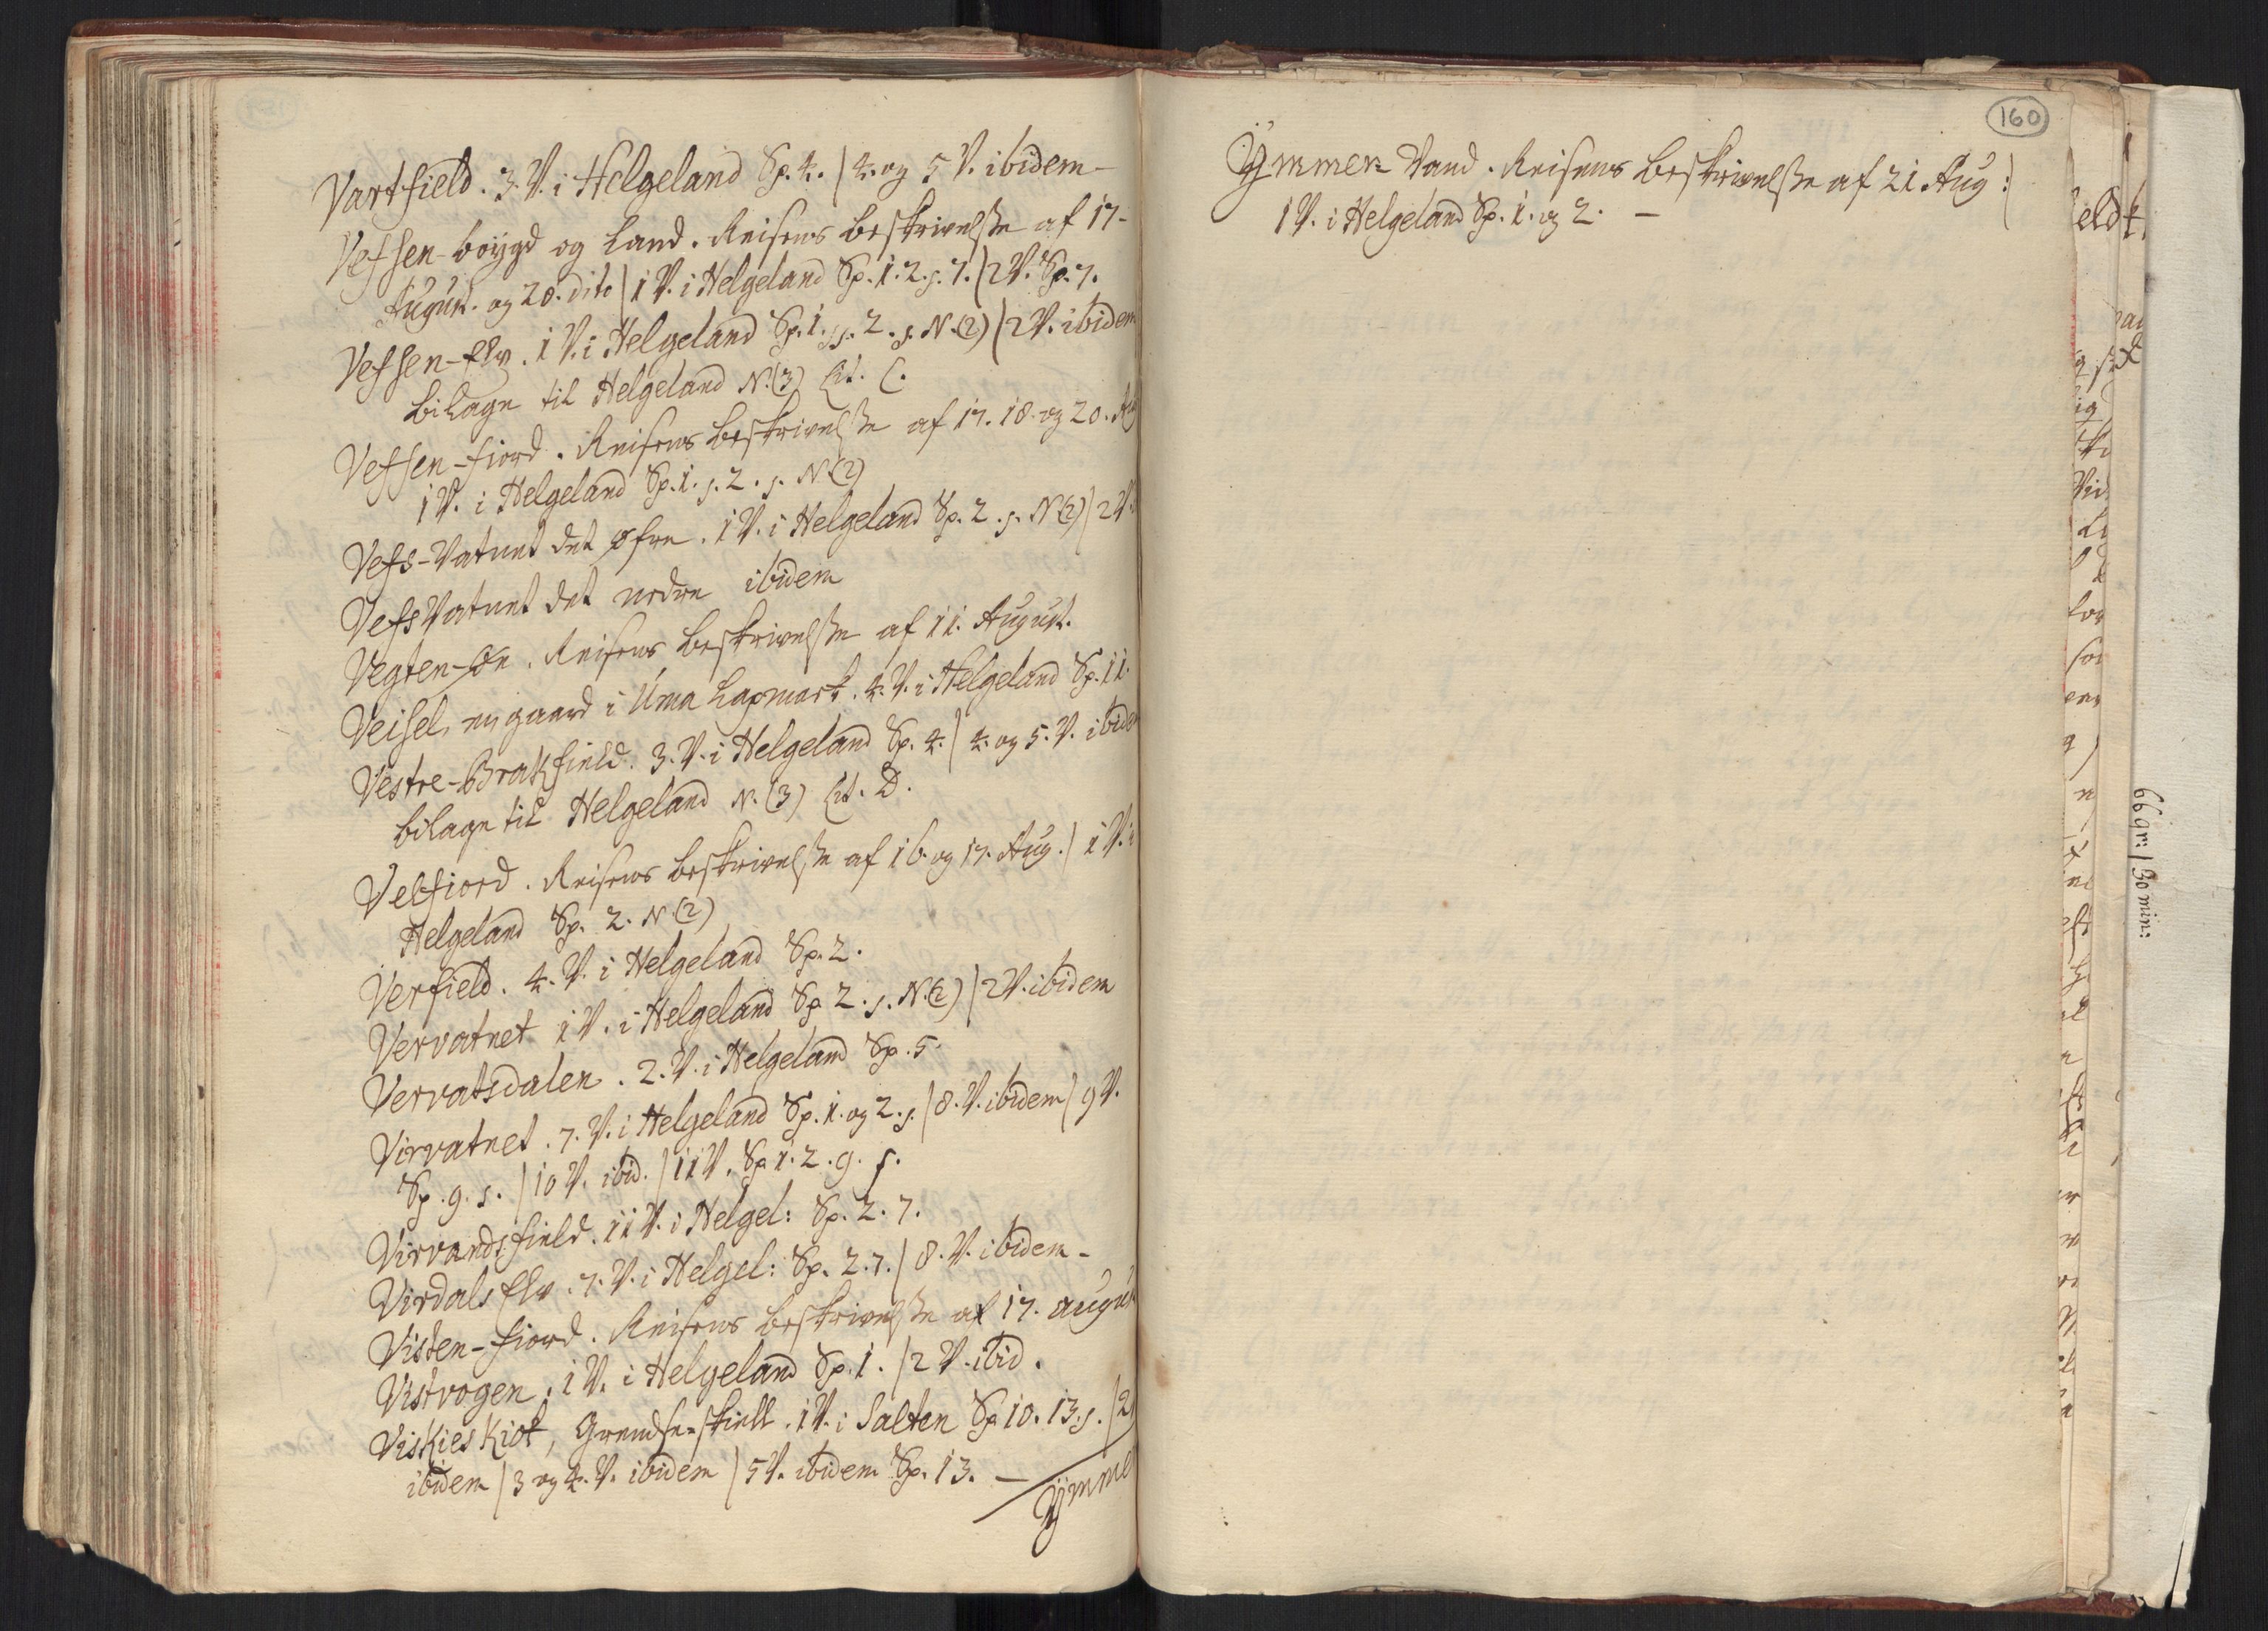 Vartfield. 3. V. i Helgeland Sp. 4. | 4. og 5 V. ibidem -
Vefsen-böygd og Land. Reisens beskrivelsse af 17-
August. og 20. dito | 1 V. i Helgeland Sp. 1. 2. s. 7. | 2 V. Sp. 7.
Vefsen-Elv. 1 V. i Helgeland Sp. 1. s. 2. s. N. (2) | 2 V. ibidem
bilage til Helgeland N. (3) Lit. C.
Vefsen-fiord. Reisens beskrivelsse af 17. 18. og 20. Aug
1 V. i Helgeland Sp. 1. s. 2. s. N (2)
Vefs-Vatnet det øfre. 1 V. i Helgeland Sp. 2. s. N (2) | 2 V.
Vefs Vatnet det nedre ibidem
Vegten-Øe. Reisens beskrivelsse af 11. August.
Veisel, en gaard i Uma Lapmark. 4. V. i Helgeland Sp. 11.
Vestre-Brakfield. 3. V. i Helgeland Sp. 4. | 4. og 5. V. ibide
bilage til Helgeland N. (3) Lit. D.
Velfiord. Reisens beskrivelsse af 16. og 17. Aug. | 1 V. i
Helgeland Sp. 2. N (2)
Verfield. 4. V. i Helgeland Sp. 2.
Vervatnet 1 V. i Helgeland Sp 2. s. N. (2) | 2 V. ibidem
Vervatsdalen. 2. V. i Helgeland Sp. 5.
Virvatnet. 7. V. i Helgeland Sp. 1. og 2. s. | 8. V. ibidem | 9 V.
Sp. 9. s. | 10 V. ibid. | 11 V. Sp 1. 2. 9. s.
Virvandsfield. 11 V. i Helgel: Sp. 2. 7.
Virdals Elv. 7. V. i Helgel: Sp. 2. 7. | 8. V. ibidem -
Visten-fiord. Reisens beskrivelsse af 17. august
Vistvogen. 1 V. i Helgeland Sp. 1. | 2 V. ibid.
Viskies Kiot, Grendse-skiell. 1 V. i Salten Sp 10. 13. s. | 2
ibidem | 3 og 4. V. ibidem | 5 V. ibidem Sp. 13. —
Ÿmmer
160
Ÿmmer-Vand. Reisens beskrivelsse af 21. Aug: |
1 V. i Helgeland Sp. 1. og 2. —
66 gr: | 30 min: